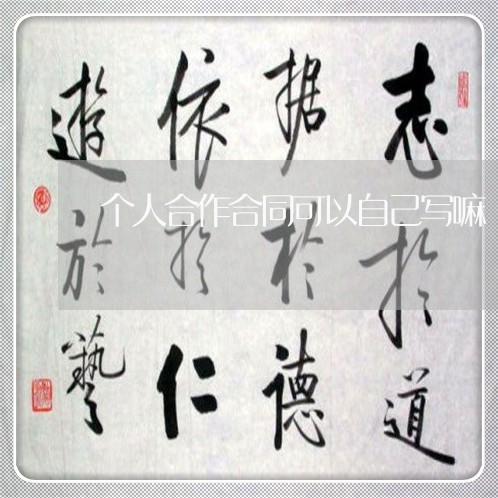 志於道
据於德
依於仁
遊於藝
个人合作合同可以自己写嘛